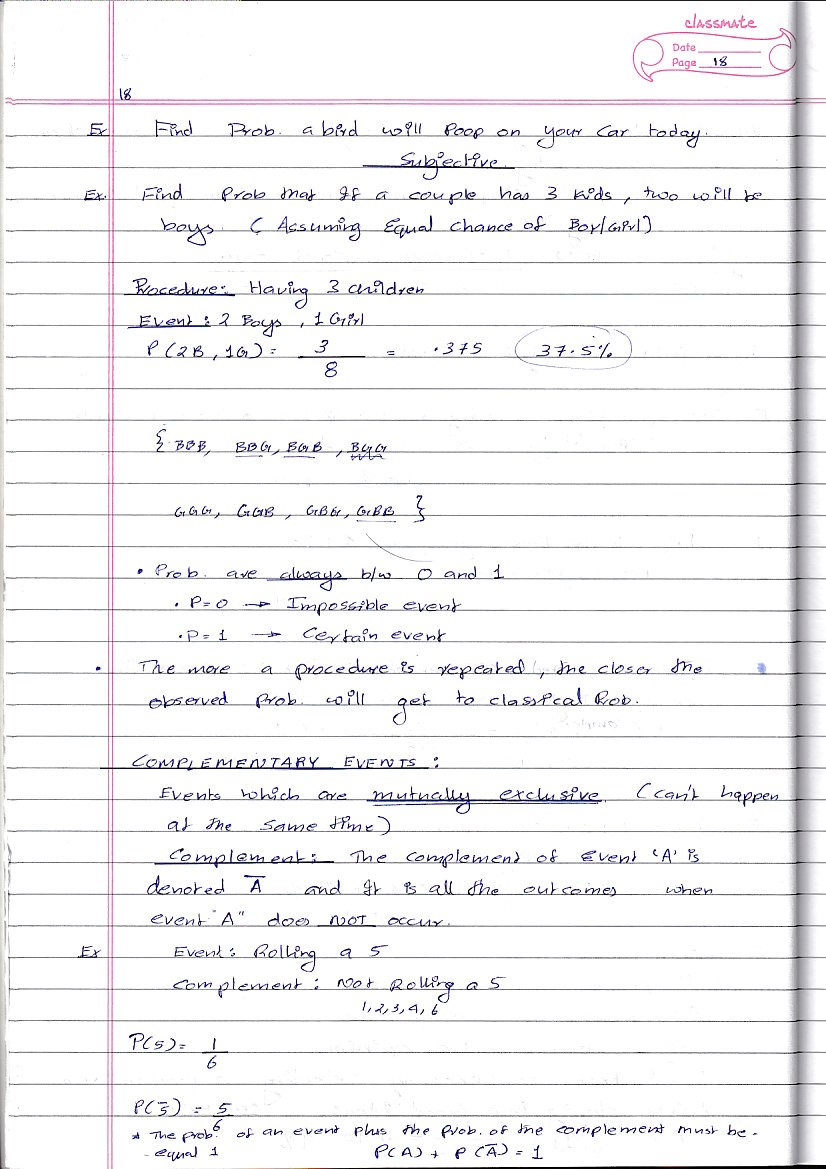 classmate
Date
Page 18
18
Ex Find Prob. a bird will Poop on your Car today.
Subjective
Ex. Find Prob that If a couple has 3 Kids, two will be
boys. (Assuming Equal Chance of Boy/Girl)
Procedure: Having 3 children
Event: 2 Boys, 1 Girl
P(2B, 1G) = 3/8 = .375 37.5%
{ BBB, BBG, BGB, BGG
GGG, GGB, GBG, GBB }
• Prob. are always b/w 0 and 1
• P=0 → Impossible event
• P=1 → Certain event
• The more a procedure is repeated, the closer the
observed Prob. will get to classical Prob.
COMPLEMENTARY EVENTS:
Events which are mutually exclusive. (can't happen
at the same time)
Complement: The complement of event 'A' is
denoted A̅ and It is all the outcomes when
event "A" does NOT occur.
Ex Event: Rolling a 5
Complement: Not Rolling a 5
1,2,3,4,6
P(5) = 1/6
P(5̅) = 5/6
* The prob. of an event plus the Prob. of the complement must be.
- equal 1 P(A) + P(A̅) = 1